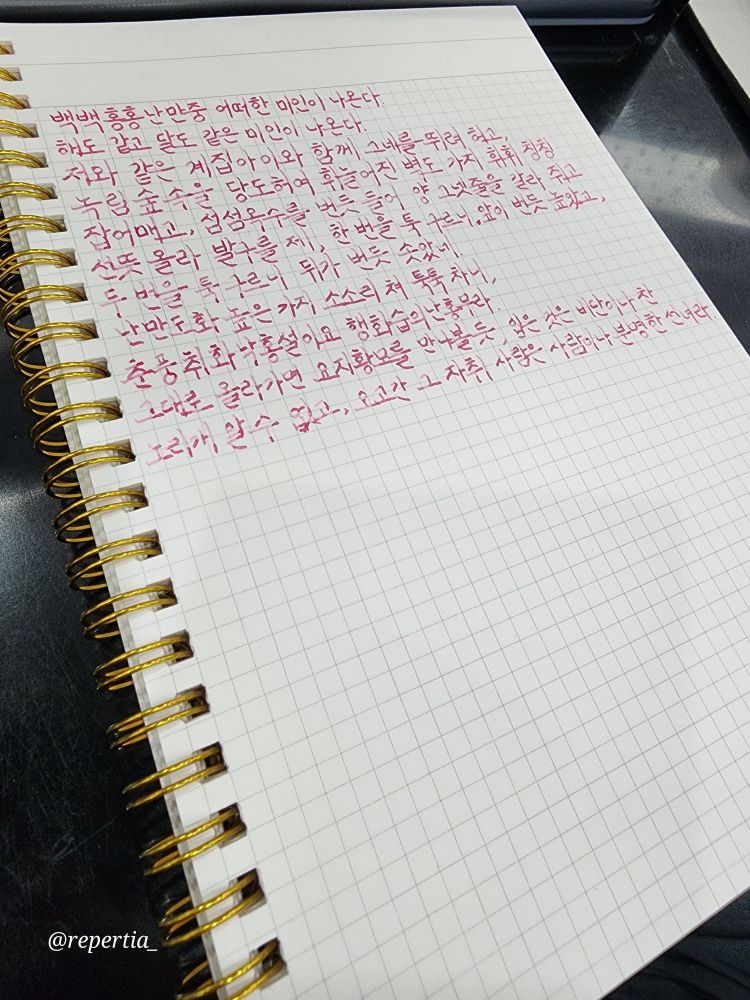 백백홍홍난만중 어떠한 미인이 나온다.
해도 같고 달도 같은 미인이 나온다.
저와 같은 계집아이와 함께 그네를 뛰려 하고,
녹림 숲 속을 당도허여 휘늘어진 벽도 가지 휘휘 칭칭
잡어매고, 섬섬옥수를 번듯 들어 양 그넷줄을 갈라 쥐고
선뜻 올라 발구를 제, 한 번을 툭 구르니 앞이 번듯 높았고,
두 번을 툭 구르니 뒤가 번듯 솟았네.
난만도화 높은 가지 소소리쳐 툭툭 차니,
춘풍취화낙홍설이요 행화습의난홍무라.
그대로 올라가면 요지황모를 만나볼듯, 입은 것은 비단이나 찬
노리개 알 수 없고, 오고간 그 자취 사람은 사람이나 분명한 선녀라.
@repertia_